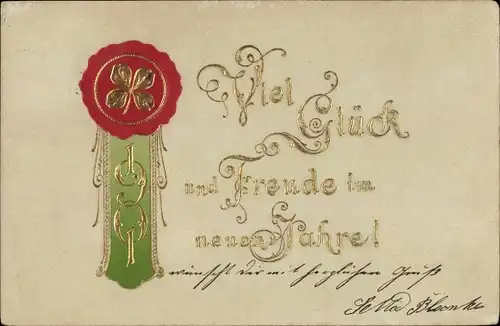 1901
Viel
Glück
und Freude im
neuen Jahre!
wünscht Dir mit herzlichem Gruß